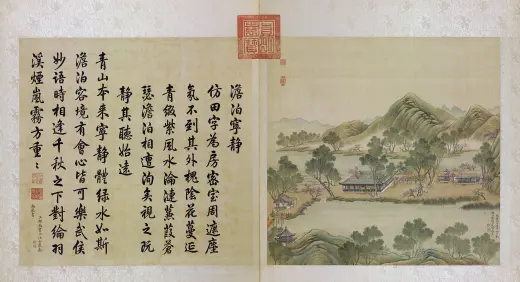 澹泊寧靜
仿田字為房密室周遮塵
氛不到其外槐陰花蔓延
青綴紫風水淪漣蒹葭蒼
瑟澹泊相遭洵矣視之既
靜其聽始遠
青山本來寧靜體綠水如斯
澹泊容境有會心皆可樂武侯
妙語時相逢千秋之下對綸羽
溪煙嵐霧方重〻